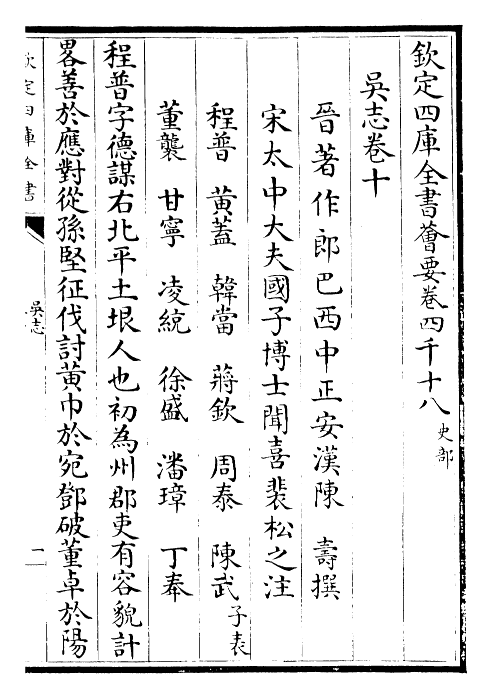 欽定四庫全書薈要卷四千十八 史部
吳志卷十
晉著作郎巴西中正安漢陳 壽撰
宋太中大夫國子博士聞喜裴松之注
程普 黃蓋 韓當 蔣欽 周泰 陳武 子表
董襲 甘寧 凌統 徐盛 潘璋 丁奉
程普字德謀右北平土垠人也初為州郡吏有容貌計
畧善於應對從孫堅征伐討黃巾於宛鄧破董卓於陽
欽定四庫全書
吳志